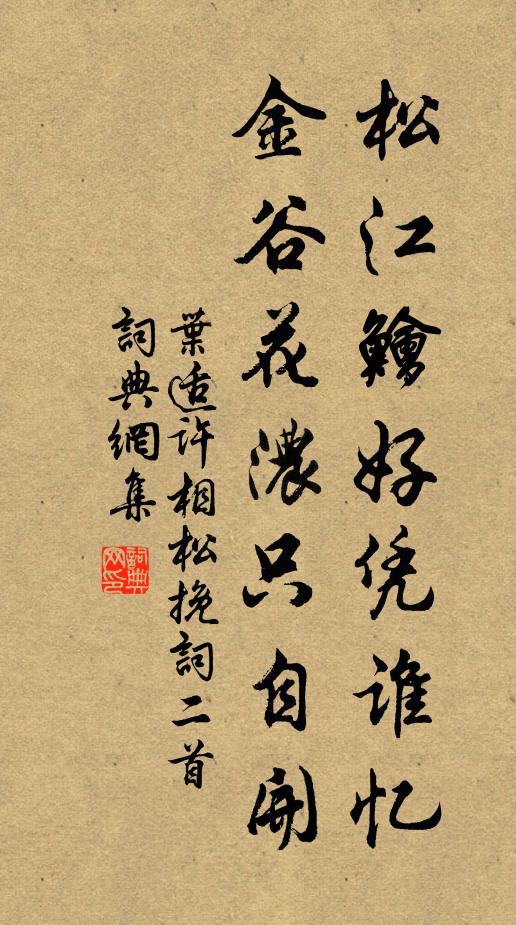 松江鱠好凭谁忆
金谷花濃只自開
葉适许相松挽詞二首
詞典網集
詞典网印